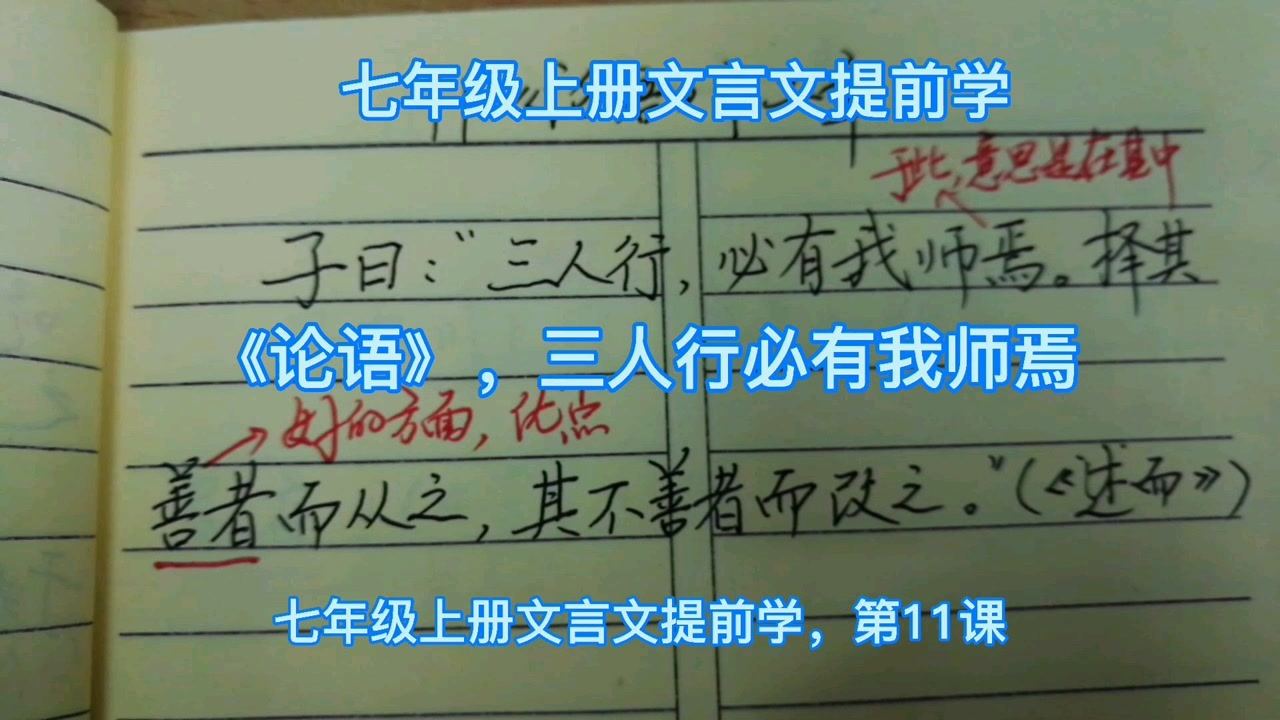 七年级上册文言文提前学
于此,意思是在其中
子曰:“三人行,必有我师焉。择其
《论语》,三人行必有我师焉
好的方面,优点
善者而从之,其不善者而改之。”(《述而》)
七年级上册文言文提前学,第11课